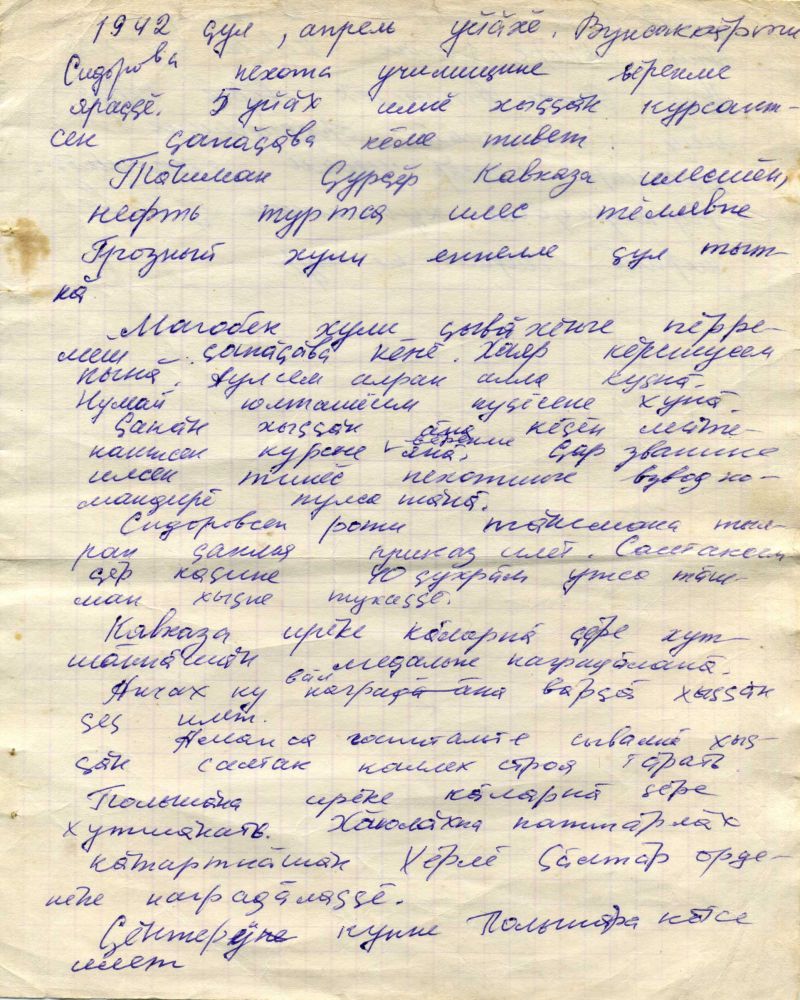 1942 ҫул, апрель уйӑхӗ. Вунсаккӑрти
Сидорова пехота училищине вӗренме
яраҫҫӗ. 5 уйӑх иртнӗ хыҫҫӑн курсант-
сен ҫапӑҫӑва кӗме тивет.
Тӑшман Ҫурҫӗр Кавказа илесшӗн,
нефть туртса илес тӗллевпе
Грозный хули еннелле ҫул тыт-
нӑ.
Малгобек хули ҫывӑхӗнче пӗрре-
мӗш ҫапӑҫӑва кӗнӗ. Хаяр кӗрешӳсем
пынӑ. Аулсем алран алла куҫнӑ.
Нумай юлташӗсем пуҫӗсене хунӑ.
Ҫапӑҫ хыҫҫӑн ӑна кӗҫӗн лейте-
нантсен курсне вӗренме янӑ. Ҫар званине
илсен тинӗс пехотинче взвод ко-
мандирӗ пулса тӑнӑ.
Сидоровсен роти тӑшмана тыл-
ран ҫапма приказ илет. Салтаксем
ҫӗр каҫипе 40 ҫухрӑм утса тӑш-
ман хыҫне тухаҫҫӗ.
Кавказа ирӗке кӑларнӑ ҫӗре хут-
шӑннӑшӑн медальпе наградӑланӑ.
Анчах ку вӑл наградӑна вӑрҫӑ хыҫҫӑн
ҫеҫ илет.
Аманса госпитальте сывалнӑ хыҫ-
ҫӑн салтак каллех строя тӑрать.
Польшӑна ирӗке кӑларнӑ ҫӗре
хутшӑнать. Хӑюлӑхпа паттӑрлӑх
кӑтартнӑшӑн Хӗрлӗ Ҫӑлтӑр орде-
нӗпе наградӑлаҫҫӗ.
Ҫӗнтерӳ кунне Польшӑра кӗтсе
илет